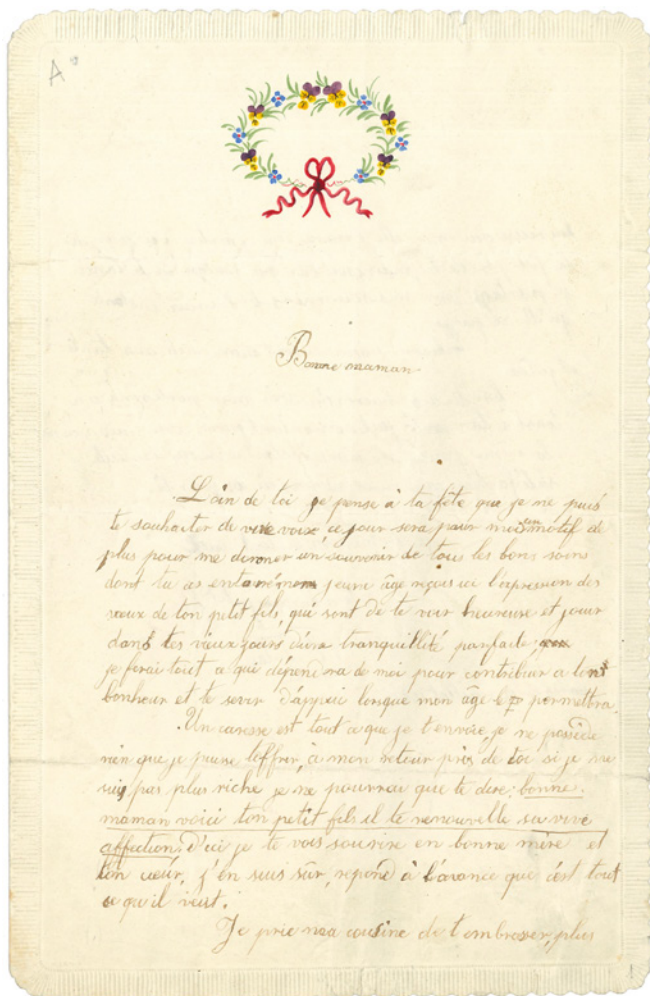 A
Bonne maman
Loin de toi je pense à ta fête que je ne puis
te souhaiter de vive voix, ce jour sera pour moi un motif de
plus pour me donner un souvenir de tous les bons soins
dont tu as entouré mon jeune âge reçois ici l'expression des
vœux de ton petit fils, qui sont de te voir heureuse et jouir
dans tes vieux jours d'une tranquillité parfaite;
je ferai tout ce qui dépendra de moi pour contribuer a ton
bonheur et te servir d'appui lorsque mon âge le permettra.
Un caresse est tout ce que je t'envoie, je ne possède
rien que je puisse t'offrir, à mon retour près de toi si je ne
suis pas plus riche je ne pourrai que te dire: bonne
maman voici ton petit fils il te renouvelle sa vive
affection. D'ici je te vois sourire en bonne mère et
ton cœur, j'en suis sûr, répond à l'avance que c'est tout
ce qu'il veut.
Je prie ma cousine de t'embrasser, plus